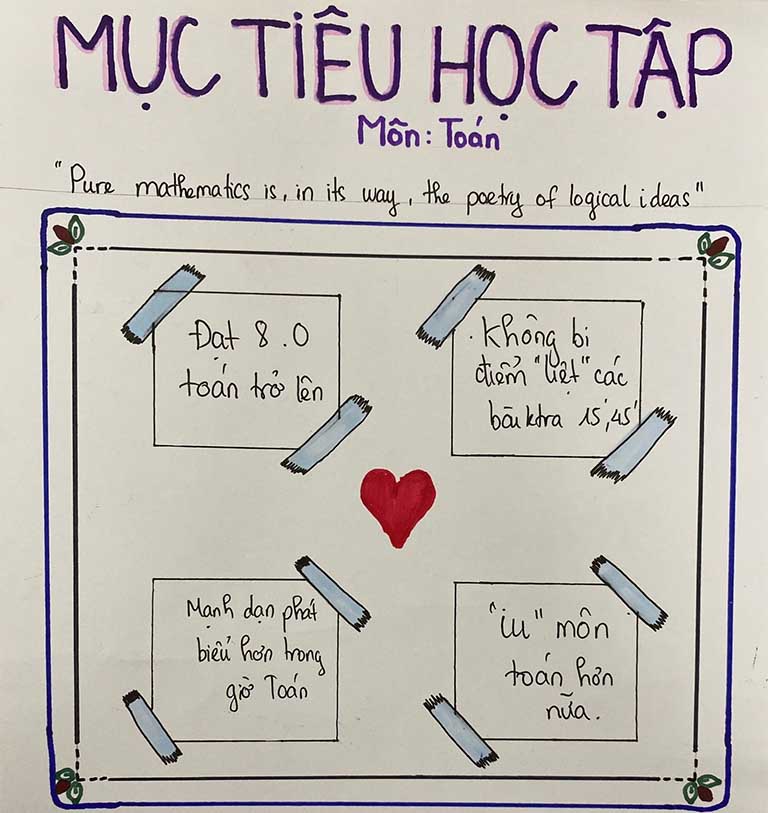 MỤC TIÊU HỌC TẬP
Môn: Toán
"Pure mathematics is, in its way, the poetry of logical ideas"
Đạt 8.0
toán trở lên
Không bị
điểm "liệt" các
bài ktra 15', 45'
Mạnh dạn phát
biểu hơn trong
giờ Toán
"iu" môn
toán hơn
nữa.